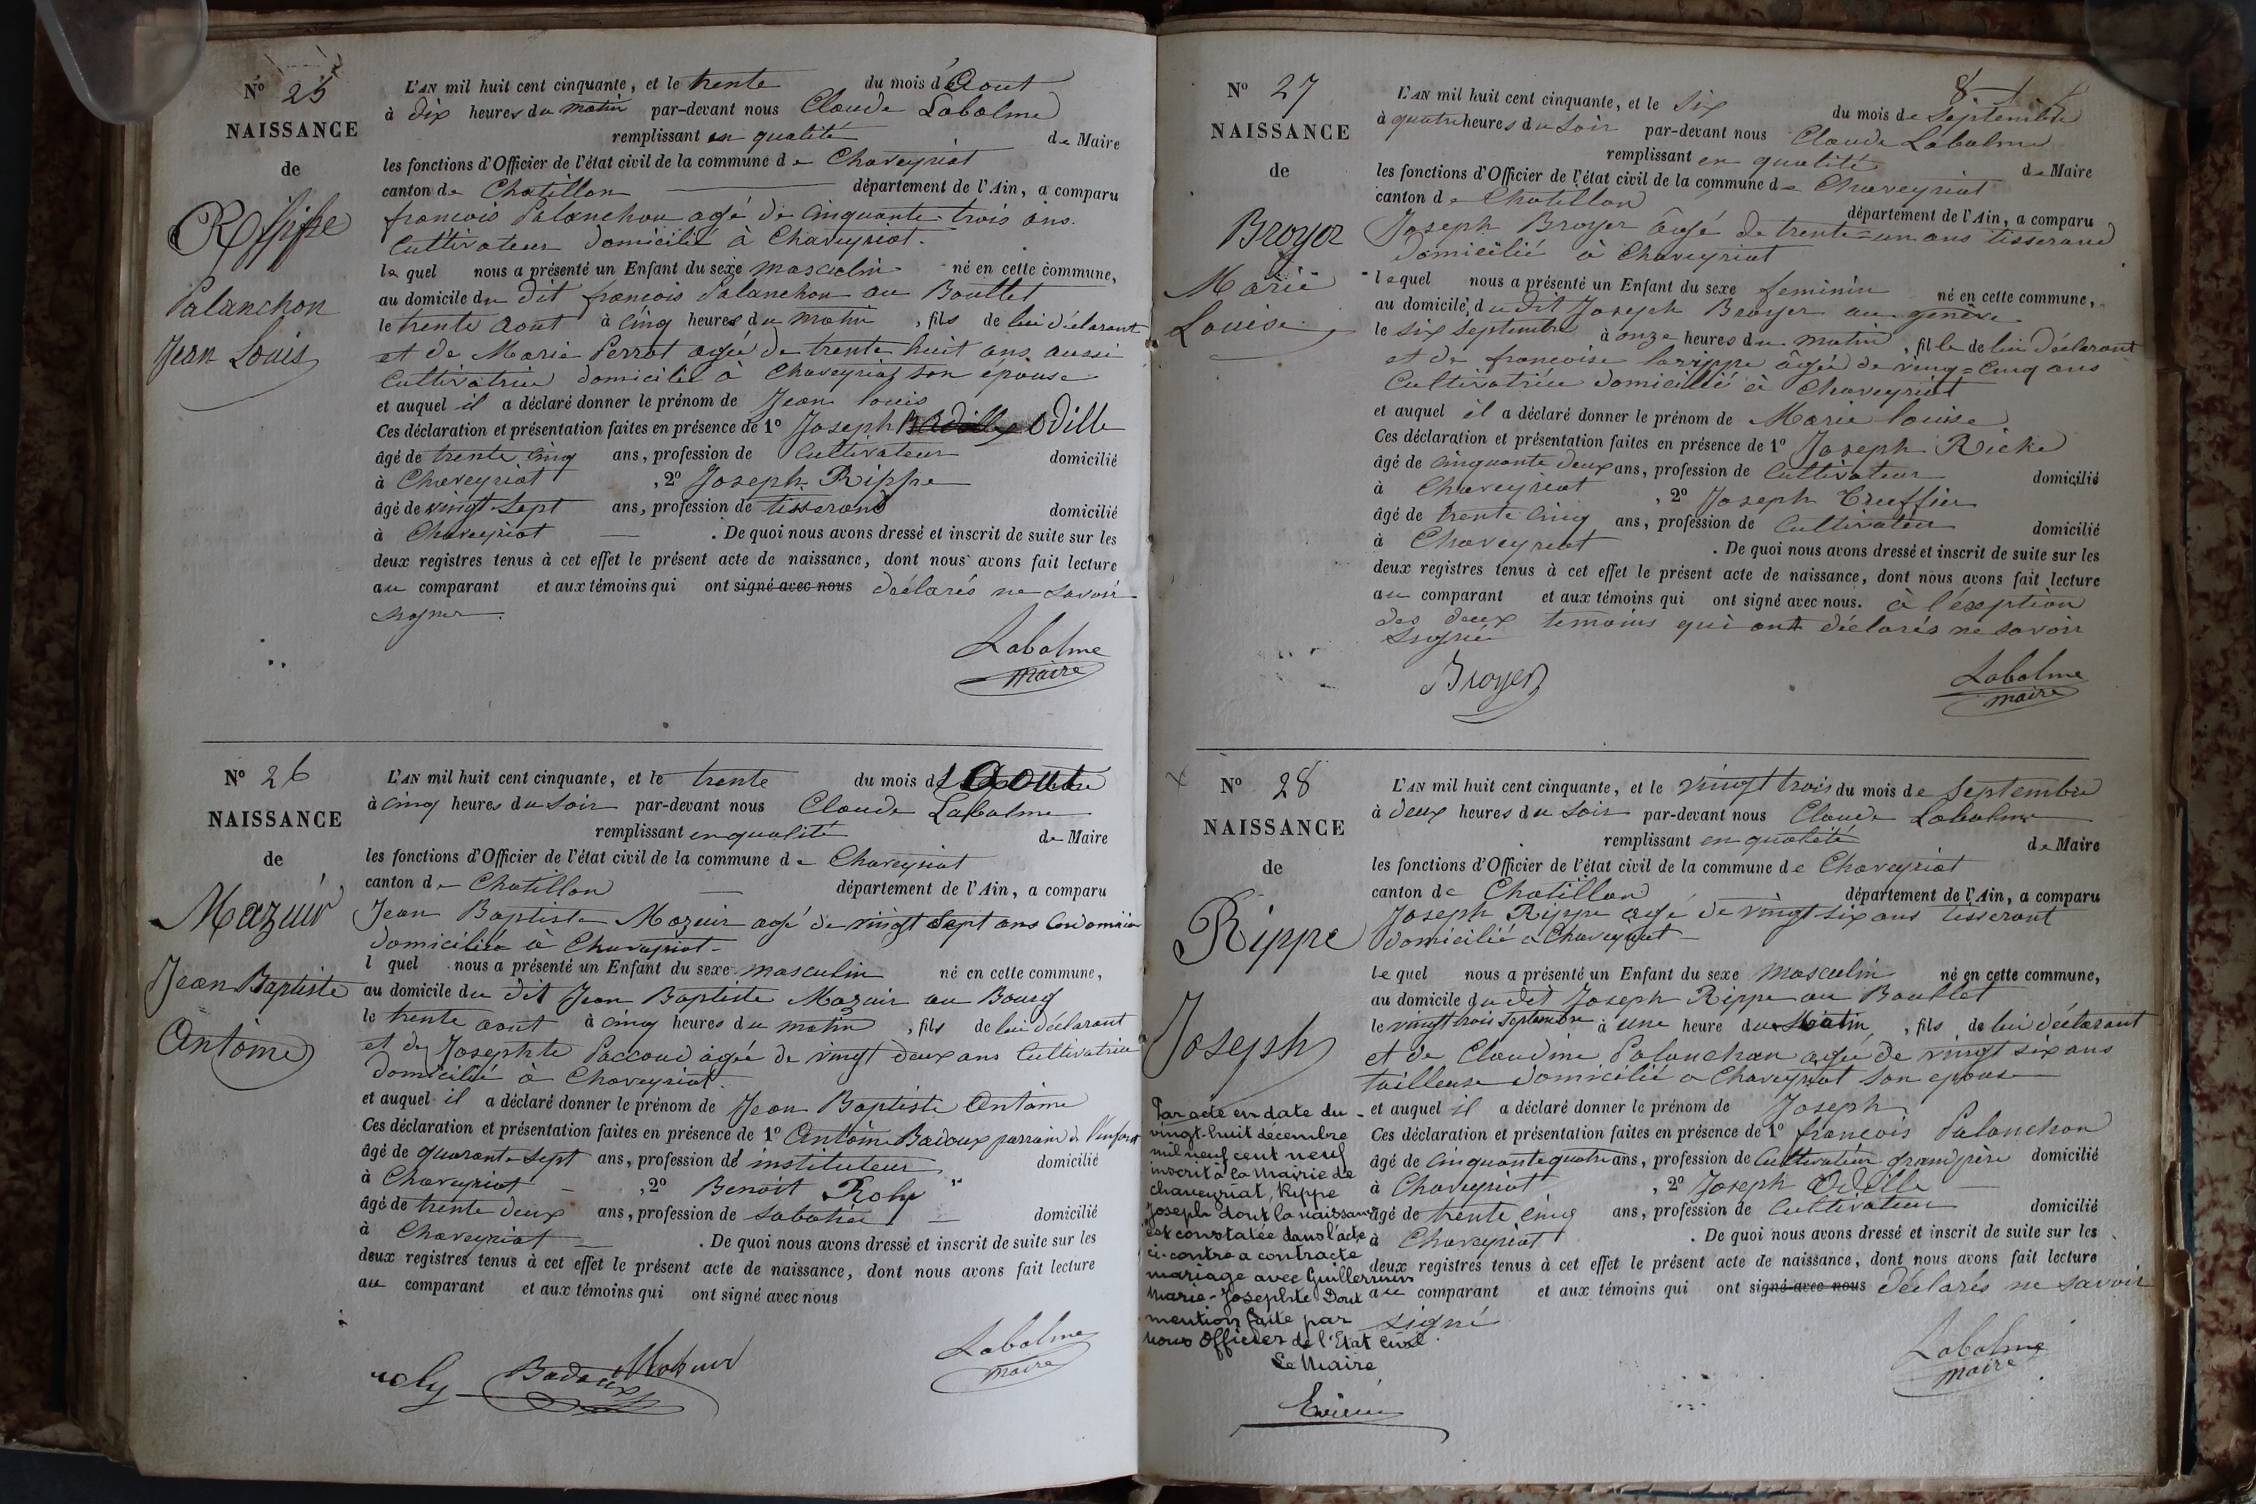 N° 25
NAISSANCE
de
Rippe
Palanchon
Jean Louis
L'AN mil huit cent cinquante, et le trente du mois d'Aout
à dix heures du matin par-devant nous Claude Labalme
remplissant en qualité de Maire
les fonctions d'Officier de l'état civil de la commune de Chaveyriat
canton de Chatillon département de l'Ain, a comparu
francois Palanchon agé de cinquante-trois ans
Cultivateur domicilié à Chaveyriat.
lequel nous a présenté un Enfant du sexe masculin né en cette commune,
au domicile du dit francois Palanchon au Boullet
le trente aout à cinq heures du matin, fils de lui déclarant
et de Marie Perrot agée de trente huit ans aussi
Cultivatrice domiciliée à Chaveyriat son épouse
et auquel il a déclaré donner le prénom de Jean louis
Ces déclaration et présentation faites en présence de 1° Joseph Odille
âgé de trente cinq ans, profession de Cultivateur domicilié
à Chaveyriat, 2° Joseph Rippe
âgé de vingt-sept ans, profession de tisserand domicilié
à Chaveyriat. De quoi nous avons dressé et inscrit de suite sur les
deux registres tenus à cet effet le présent acte de naissance, dont nous avons fait lecture
au comparant et aux témoins qui ont signé avec nous déclarés ne savoir
signer.
Labalme
maire
N° 26
NAISSANCE
de
Mazuir
Jean Baptiste
Antoine
L'AN mil huit cent cinquante, et le trente du mois d'Aout
à cinq heures du soir par-devant nous Claude Labalme
remplissant en qualité de Maire
les fonctions d'Officier de l'état civil de la commune de Chaveyriat
canton de Chatillon département de l'Ain, a comparu
Jean Baptiste Mazuir agé de vingt sept ans
domicilié à Chaveyriat
l quel nous a présenté un Enfant du sexe masculin né en cette commune,
au domicile du dit Jean Baptiste Mazuir au Bourg
le trente aout à cinq heures du matin, fils de lui déclarant
et de Josephte Paccoud agée de vingt deux ans Cultivatrice
domicilié à Chaveyriat.
et auquel il a déclaré donner le prénom de Jean Baptiste Antoine
Ces déclaration et présentation faites en présence de 1° Antoine Badoux parrain de l'enfant
âgé de quarante-sept ans, profession de instituteur domicilié
à Chaveyriat, 2° Benoit Roly
âgé de trente deux ans, profession de sabotier domicilié
à Chaveyriat. De quoi nous avons dressé et inscrit de suite sur les
deux registres tenus à cet effet le présent acte de naissance, dont nous avons fait lecture
au comparant et aux témoins qui ont signé avec nous
Badoux Mazuir
Labalme
maire
N° 27
NAISSANCE
de
Broyer
Marie
Louise
8
L'AN mil huit cent cinquante, et le six du mois de Septembre
à quatre heures du soir par-devant nous Claude Labalme
remplissant en qualité de Maire
les fonctions d'Officier de l'état civil de la commune de Chaveyriat
canton de Chatillon département de l'Ain, a comparu
Joseph Broyer âgé de trente=un ans tisserand
domicilié à Chaveyriat
lequel nous a présenté un Enfant du sexe feminin né en cette commune,
au domicile, du dit Joseph Broyer au genève
le six septembre à onze heures du matin, fille de lui déclarant
et de francoise larippe âgée de vingt=cinq ans
Cultivatrice domicilié à Chaveyriat
et auquel il a déclaré donner le prénom de Marie louise
Ces déclaration et présentation faites en présence de 1° Joseph Riche
âgé de cinquante deux ans, profession de Cultivateur domicilié
à Chaveyriat, 2° Joseph Truffier
âgé de trente cinq ans, profession de Cultivateur domicilié
à Chaveyriat. De quoi nous avons dressé et inscrit de suite sur les
deux registres tenus à cet effet le présent acte de naissance, dont nous avons fait lecture
au comparant et aux témoins qui ont signé avec nous. à l'exeption
des deux temoins qui ont déclarés ne savoir
Signé
Broyer
Labalme
maire
N° 28
NAISSANCE
de
Rippe
Joseph
Par acte en date du
vingt-huit décembre
mil neuf cent neuf
inscrit à la Mairie de
chaveyriat, Rippe
Joseph dont la naissance
est constatée dans l'acte
ci-contre a contracté
mariage avec Guillermin
Marie-Josephte Dont
mention faite par
nous Officier de l'Etat Civil
Le Maire
L'AN mil huit cent cinquante, et le vingt trois du mois de Septembre
à deux heures du soir par-devant nous Claude Labalme
remplissant en qualité de Maire
les fonctions d'Officier de l'état civil de la commune de Chaveyriat
canton de Chatillon département de l'Ain, a comparu
Joseph Rippe agé de vingt six ans tisserant
domicilié a Chaveyriat
lequel nous a présenté un Enfant du sexe masculin né en cette commune,
au domicile du dit Joseph Rippe au Boullet
le vingt trois septembre à une heure du Matin, fils de lui déclarant
et de Claudine Palanchon agée de vingt six ans
tailleuse domicilié a Chaveyriat son epouse
et auquel il a déclaré donner le prénom de Joseph
Ces déclaration et présentation faites en présence de 1° francois Palanchon
âgé de cinquante quatre ans, profession de Cultivateur grand père domicilié
à Chaveyriat, 2° Joseph Odille
âgé de trente cinq ans, profession de Cultivateur domicilié
à Chaveyriat. De quoi nous avons dressé et inscrit de suite sur les
deux registres tenus à cet effet le présent acte de naissance, dont nous avons fait lecture
au comparant et aux témoins qui ont signé avec nous déclarés ne savoir
signé.
Labalme
maire